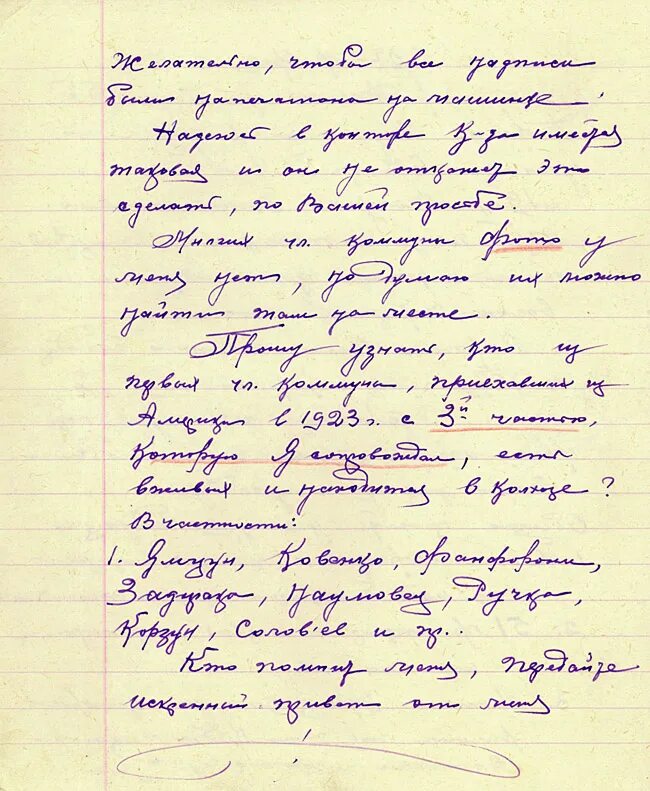 Желательно, чтобы все надписи
были напечатаны на машинке!
Надеюсь в конторе К-за имеется
таковая и он не откажет это
сделать, по Вашей просьбе.
Многих чл. коммуны фото у
меня нет, но думаю их можно
найти там на месте.
Прошу узнать, кто из
первых чл. коммуны, приехавших из
Америки в 1923 г. с 3ей частью,
которую я сопровождал, есть
в живых и находится в колхозе?
В частности:
1. Ямзун, Ковенко,
Наумовец, Ручка,
Корзун, Соловьев и пр..
Кто помнит меня, передайте
искренний привет от меня
!